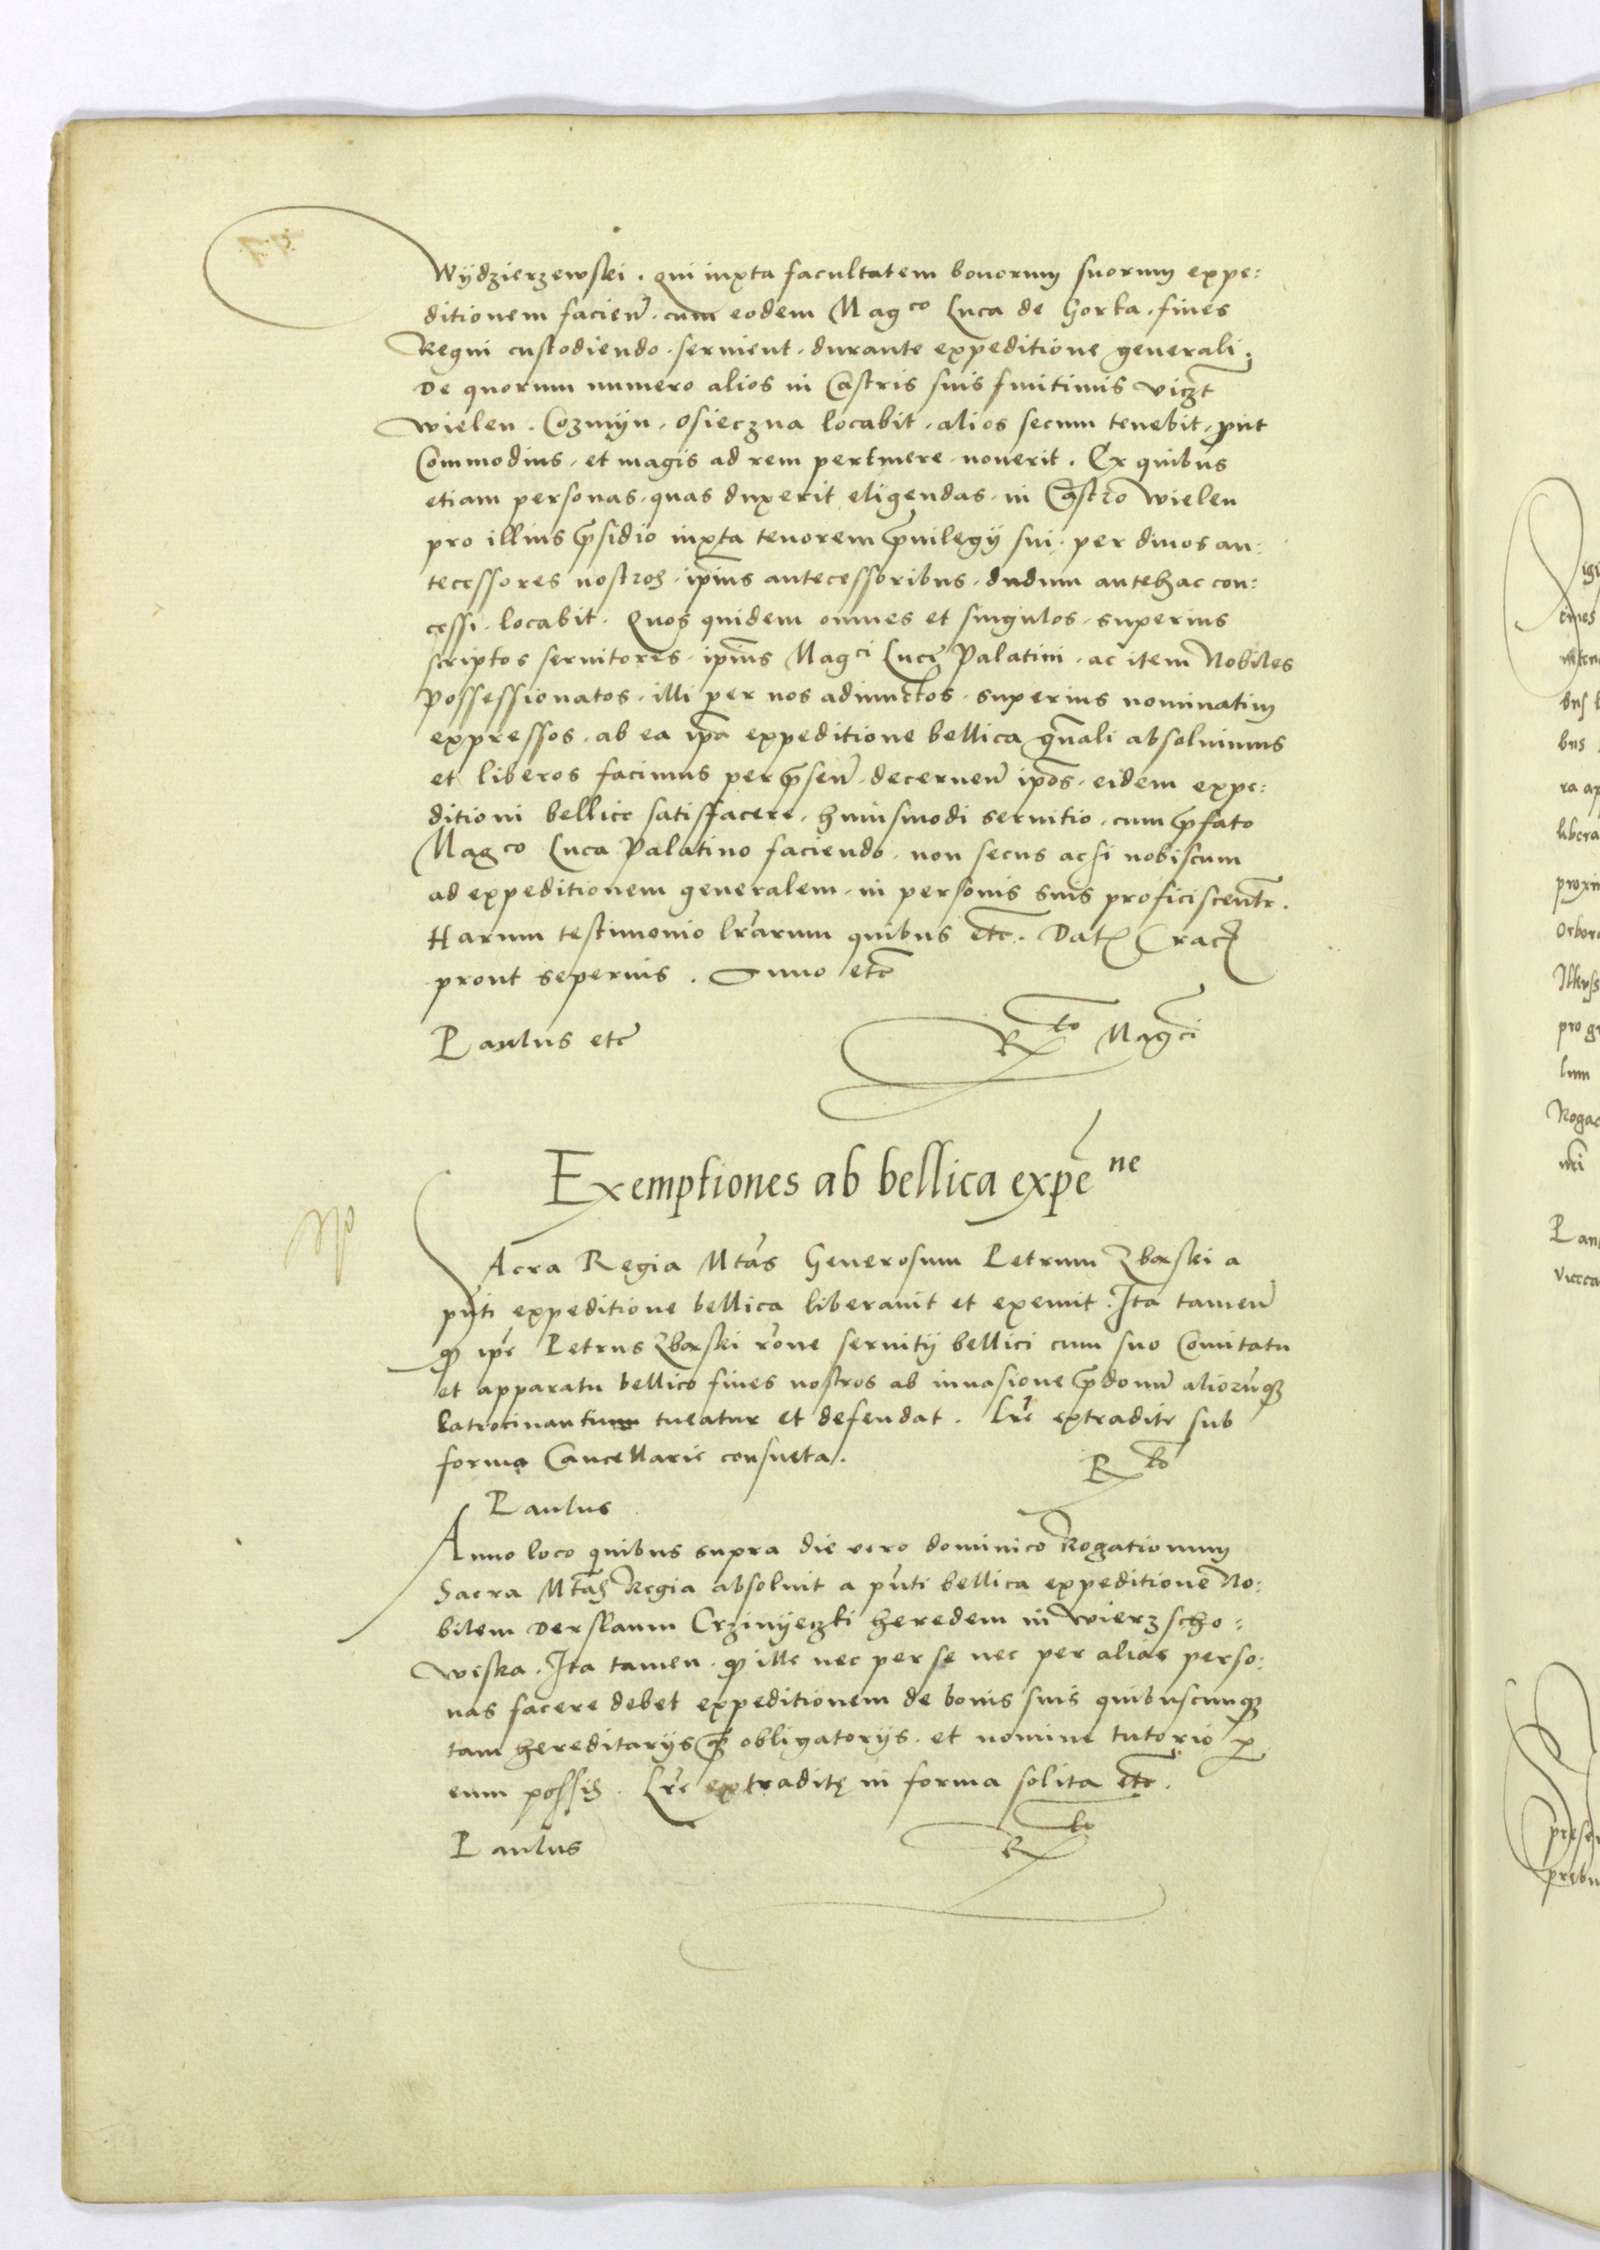 Wydzierzewski. qui iuxta facultatem bonorum suorum expe:
ditionem facien̄. cum eodem Magco Luca de Gorka. fines
Regni custodiendo. servient. durante expeditione generali.
De quorum numero alios in Castris suis finitimis viczt
Wielen. Cozmyn. Osieczna locabit. alios secum tenebit. put
Commodius. et magis ad rem pertinere noverit. Ex quibus
etiam personas. quas duxerit eligendas. in Castro Wielen
pro illius p̄sidio iuxta tenorem p̄uilegy sui. per diuos an:
tecessores nostros. ip̄ius antecessoribus. dudum antehac con:
cessi. locabit. Quos quidem omnes et singulos. superius
scriptos seruitores. ip̄ius Magci Luce Palatini. ac item Nobiles
possessionatos. illi per nos adiunctos. superius nominatim
expressos. ab ea ip̄a expeditione bellica gn̄ali absoluimus
et liberos facimus per p̄sen̄. decernen̄ ip̄os. eidem expe:
ditioni bellice satisfacere. huiusmodi seruitio. cum p̄fato
Magco Luca Palatino faciendo. non secus acsi nobiscum
ad expeditionem generalem. in personis suis proficiscent̄r.
Harum testimonio lr̄arum quibus etc. Dat Crac
prout seperius. Anno etc
Paulus etc Rto Magci
Exemptiones ab bellica expe ne
SAcra Regia Mtas Generosum Petrum Zborski a
pn̄ti expeditione bellica liberauit et exemit. Ita tamen
q ip̄e Petrus Zborski rōne seruity bellici cum suo Comitatu
et apparatu bellico fines nostros ab inuasione p̄donum aliorūq
latrocinantium tueatur et defendat. Lr̄e extradite sub
forma Cancellarie consueta. Rto
Paulus
Anno loco quibus supra die vero dominico Rogationum
Sacra Mtas Regia absoluit a pn̄ti bellica expeditione No:
bilem Derslaum Crzinyeczki heredem in Wierzscho:
wiska. Ita tamen. q ille nec per se nec per alias perso:
nas facere debet expeditionem de bonis suis quibuscunq
tam hereditarys q̄ obligatorys. et nomine tutorio p
eum possis. Lr̄e extradite in forma solita etc.
Paulus Rto